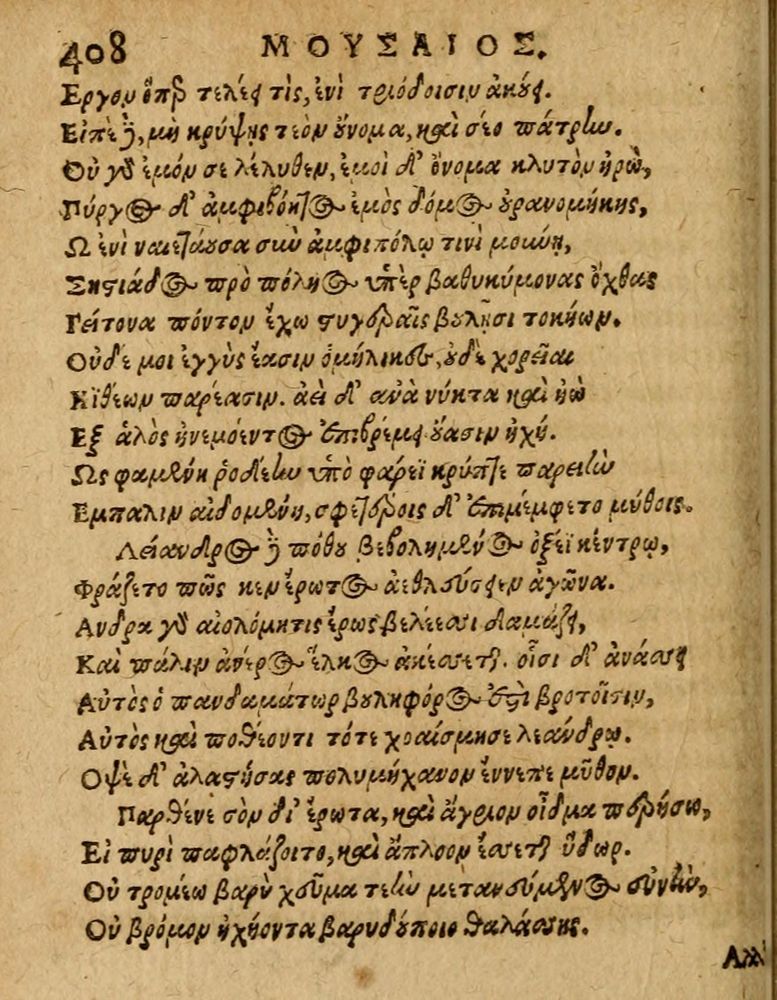 408 ΜΟΥΣΑΙΟΣ.
Εργον ὅπερ τελέει τὶς, ἐνὶ τριόδοισιν ἀκούει.
Εἰπὲ δὲ, μὴ κρύψῃς τεὸν οὔνομα, καὶ σέο πάτρην.
Οὐ γὰρ ἐμόν σε λέληθεν, ἐμοὶ δ' ὄνομα κλυτὸν ἡρὼ,
Πύργος δ' ἀμφιβόητος ἐμὸς δόμος οὐρανομήκης,
Ω ἐνὶ ναιετάουσα σὺν ἀμφιπόλῳ τινὶ μούνῃ,
Σηστιάδος πρὸ πόληος ὑπὲρ βαθυκύμονας ὄχθας
Γείτονα πόντον ἔχω στυγεραῖς βουλῇσι τοκήων.
Οὐδέ μοι ἐγγὺς ἔασιν ὁμήλικες, οὐδὲ χορεῖαι
Ηϊθέων παρέασιν. ἀεὶ δ' ἀνὰ νύκτα καὶ ἠὼ
Εξ ἁλὸς ἠνεμόεντος ἐπιβρέμει οὔασιν ἠχή.
Ως φαμένη ῥοδέην ὑπὸ φάρεϊ κρύπτε παρειὴν
Εμπαλιν αἰδομένη, σφετέροις δ' ἐπιμέμφετο μύθοις.
Λείανδρος δὲ πόθου βεβολημένος ὀξέϊ κέντρῳ,
Φράζετο πῶς κεν ἔρωτος ἀεθλεύσειεν ἀγῶνα.
Ανδρα γὰρ αἰολόμητις ἔρως βελέεσσι δαμάζει,
Καὶ πάλιν ἀνέρος ἕλκος ἀκέσσεται. οἷσι δ' ἀνάσσει
Αὐτὸς ὁ πανδαμάτωρ βουληφόρος ἐστὶ βροτοῖσιν,
Αὐτὸς καὶ ποθέοντι τότε χραίσμησε λεάνδρῳ.
Οψὲ δ' ἀλαστήσας πολυμήχανον ἔννεπε μῦθον.
Παρθένε σὸν δι' ἔρωτα, καὶ ἄγριον οἶδμα περήσω,
Εἰ πυρὶ παφλάζοιτο, καὶ ἄπλοον ἔσσεται ὕδωρ.
Οὐ τρομέω βαρὺ χεῦμα τεὴν μετανεύμενος εὐνὴν,
Οὐ βρόμον ἠχήεντα βαρυδούποιο θαλάσσης.
Αλλ'